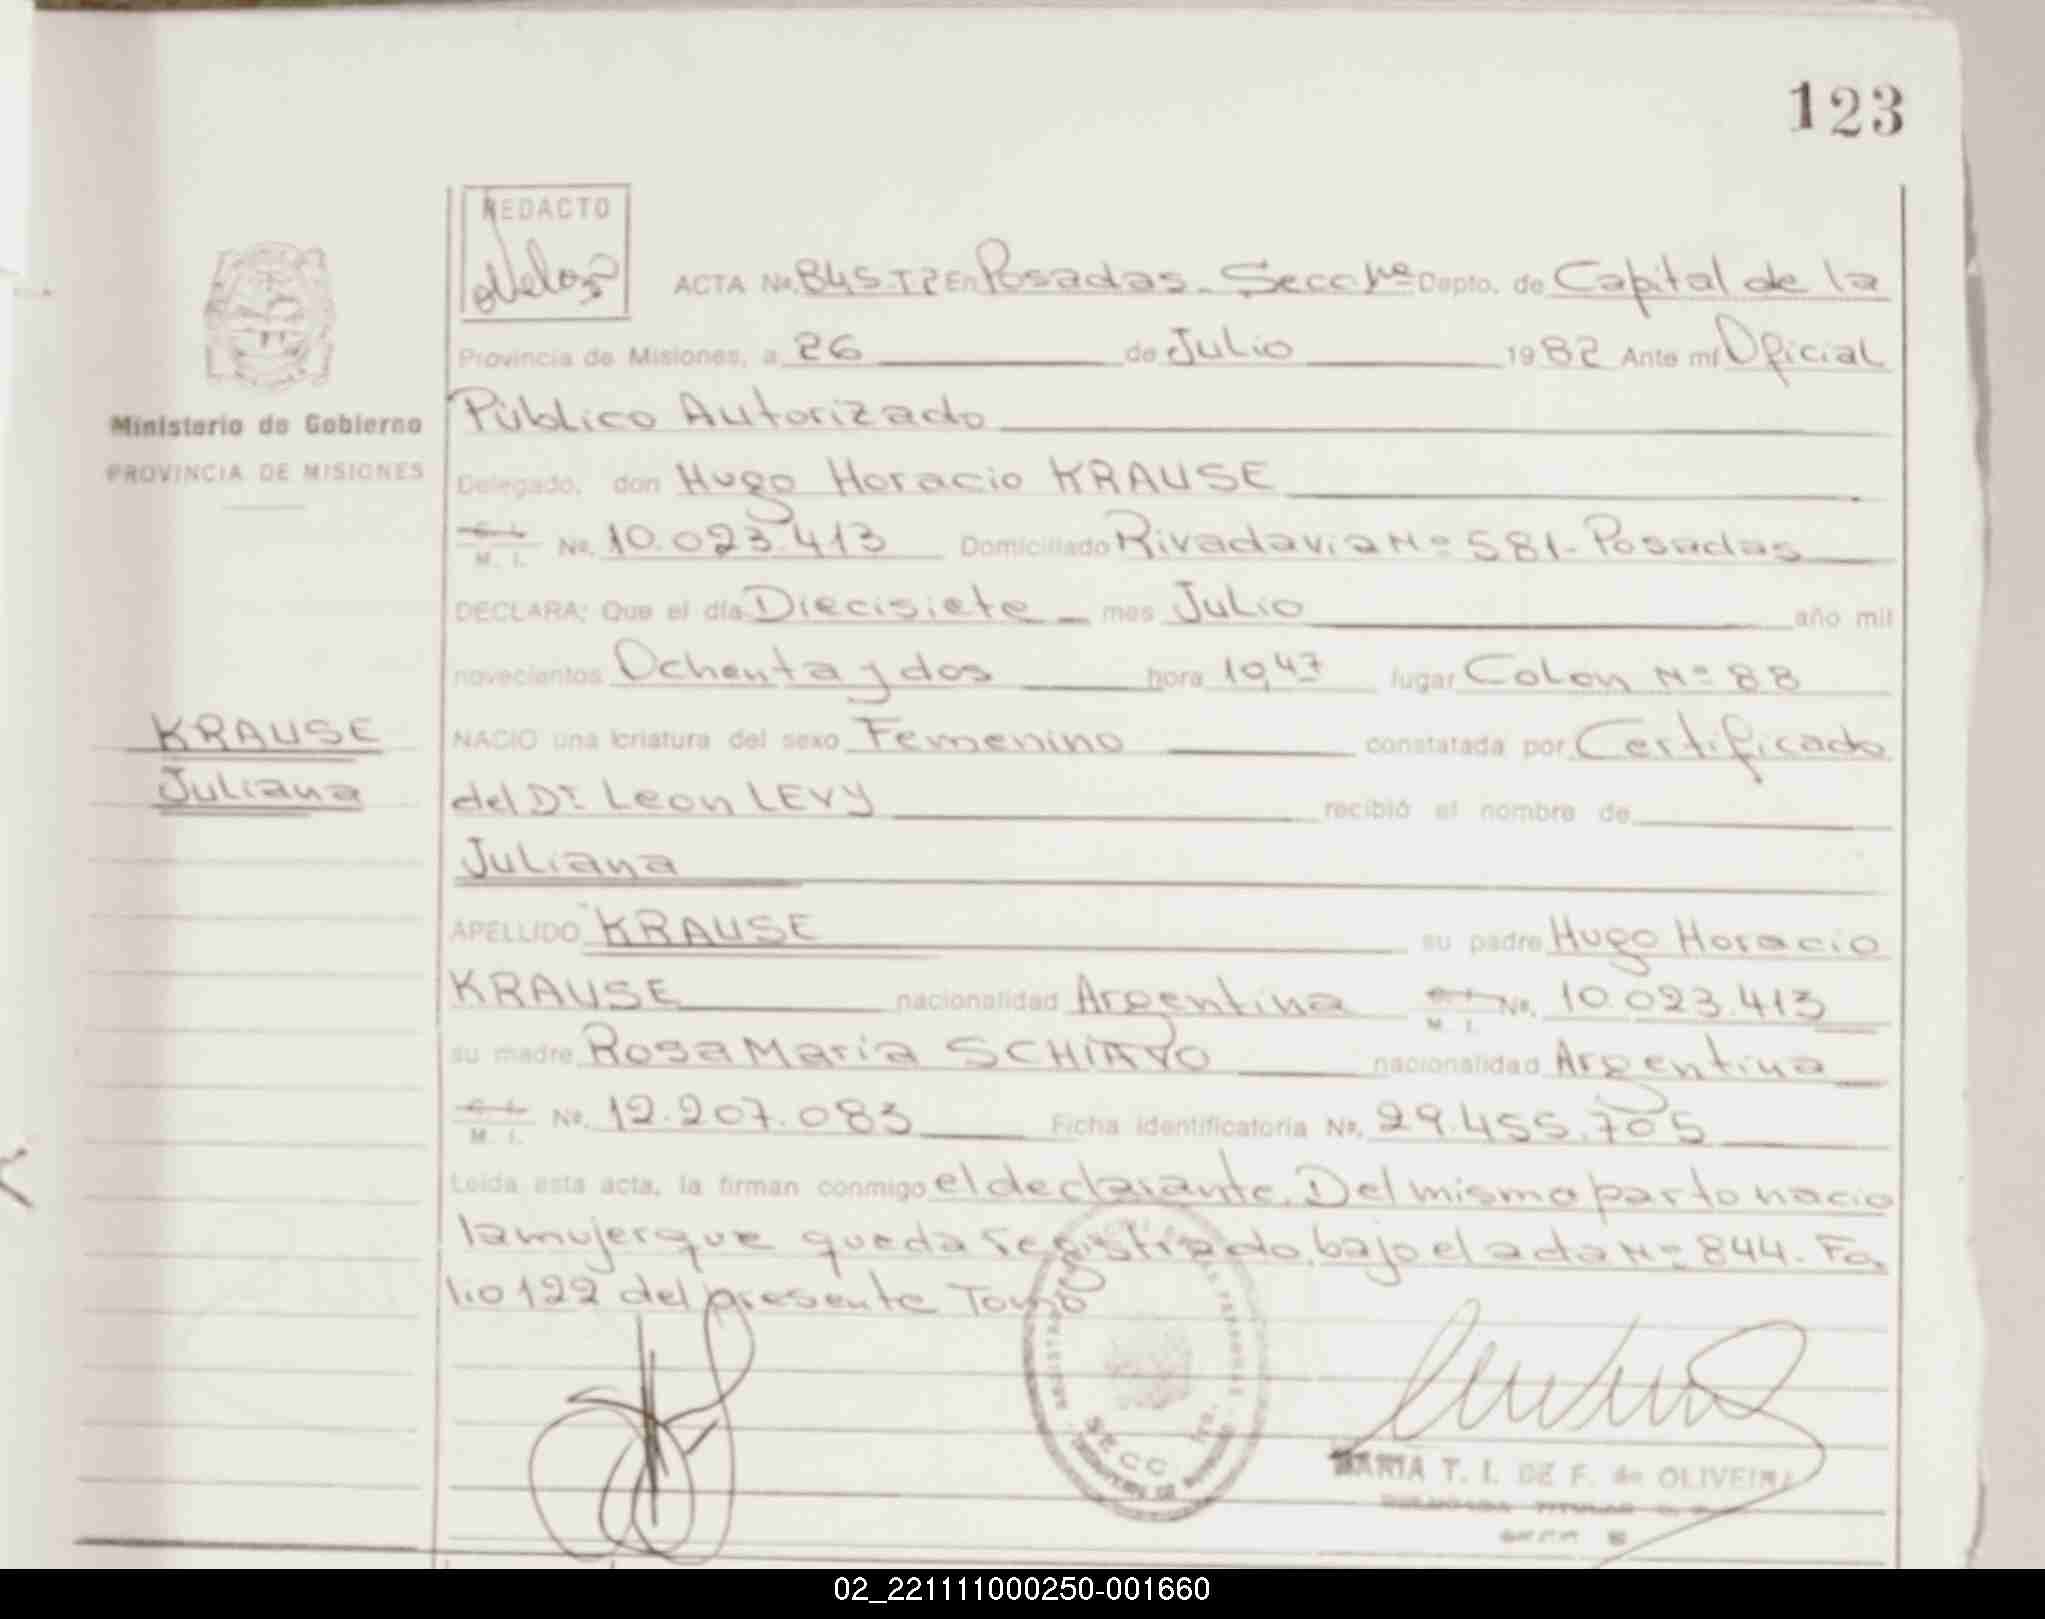 123
REDACTO
ACTA No. 845-T2 En Posadas - Secc 1ª Depto. de Capital de la
Provincia de Misiones, a 26 de Julio 1982 Ante mí Oficial
Público Autorizado
Ministerio de Gobierno
PROVINCIA DE MISIONES
Delegado, don Hugo Horacio KRAUSE
C. I.
M. I. No. 10.023.413 Domiciliado Rivadavia Nº 581 - Posadas
DECLARA: Que el día Diecisiete mes Julio año mil
novecientos Ochenta y dos hora 10,47 lugar Colon Nº 88
KRAUSE
Juliana
NACIO una criatura del sexo Femenino constatada por Certificado
del Dr. Leon LEVY recibió el nombre de
Juliana
APELLIDO KRAUSE su padre Hugo Horacio
KRAUSE nacionalidad Argentina C. I. M. I. No. 10.023.413
su madre Rosa Maria SCHIAVO nacionalidad Argentina
C. I.
M. I. No. 12.207.083 Ficha identificatoria No. 29.455.705
Leída esta acta, la firman conmigo el declarante. Del mismo parto nacio
la mujer que queda registrado, bajo el acta Nº 844 - Fo
lio 122 del presente Tomo
SECC 1ra.
MARIA T. I. DE F. de OLIVEIRA
02_221111000250-001660